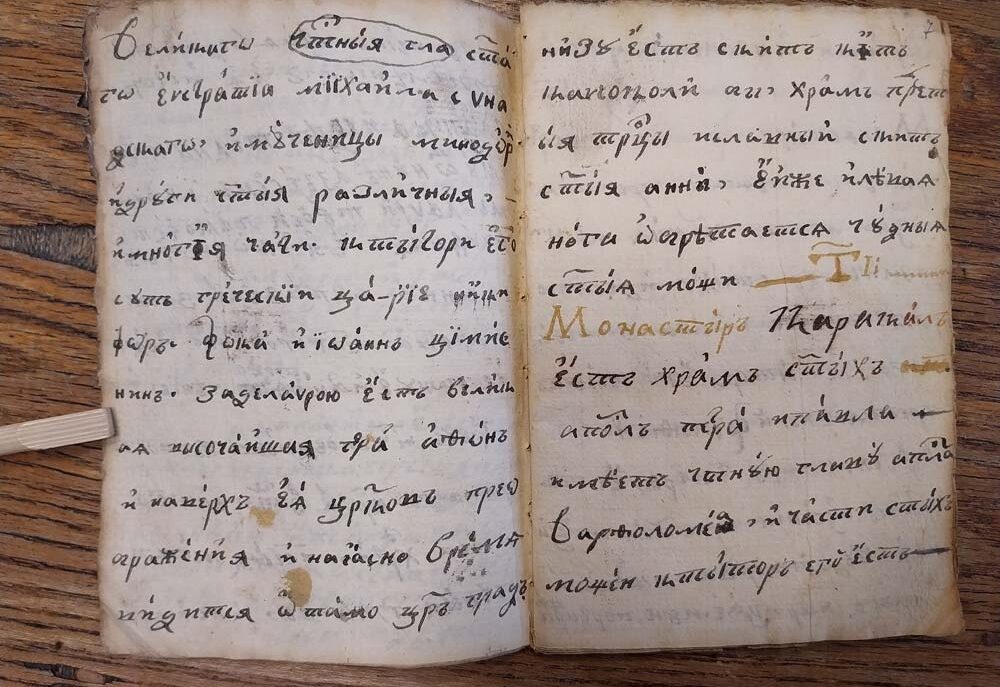 великагѡ чⷭ҇тныя гла ст҃а
гѡ є҆ѵстра́тїа мїхаи́ла сѵна
дскагѡ, и҆ мꙋ́ченицы минодѡ́р
и҆ дрꙋги чⷭ҇тыя различныя,
и҆ многїя ча́сти. ктѝтори є҆гѡ̀
сꙋть гре́ческїи ца́рїе ники
фѡръ. фѡка̀ и҆ їѡа́ннъ цїмїс
кинъ. За дела́ѵрою є҆́сть вели́к
ая высоча́ишая гора̀ а҆ѳѡ́нъ
и҆ наве́рхъ є҆ѧ̀ цр҃ковъ прео
ображе́нїя и҆ на ꙗ҆́сно вре́мѧ
ви́дится ѿ та́мо цр҃ъ градъ.
7
ни́зꙋ є҆́сть ски́тъ
кавсокали хра́мъ прест
ы́я трⷪ҇цы и сла́вный ски́тъ
ст҃ы́я а́нни, є҆ѧ́же и҆ лѣ́вая
нога̀ ѡ҆брѣта́ется чꙋ́дныѧ
ст҃ы́ѧ мо́щи
Монасты́ръ Карака́лъ
є҆́сть хра́мъ ст҃ы́хъ
а҆по́лъ петра̀ и па́вла
и҆мѣ́етъ чⷭ҇тнꙋ́ю главꙋ̀ а҆пⷭ҇ла
варѳоломе́а, и҆ ча́сти ст҃ы́хъ
мо́щей ктѝторъ є҆гѡ̀ є҆́сть